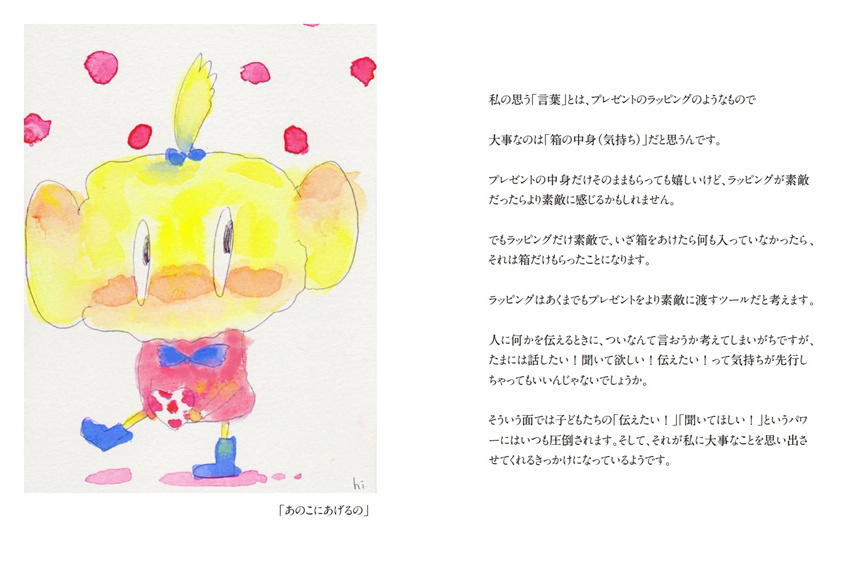 私の思う「言葉」とは、プレゼントのラッピングのようなもので
大事なのは「箱の中身（気持ち）」だと思うんです。
プレゼントの中身だけそのままもらっても嬉しいけど、ラッピングが素敵
だったらより素敵に感じるかもしれません。
でもラッピングだけ素敵で、いざ箱をあけたら何も入っていなかったら、
それは箱だけもらったことになります。
ラッピングはあくまでもプレゼントをより素敵に渡すツールだと考えます。
人に何かを伝えるときに、ついなんて言おうか考えてしまいがちですが、
たまには話したい！聞いて欲しい！伝えたい！って気持ちが先行し
ちゃってもいいんじゃないでしょうか。
そういう面では子どもたちの「伝えたい！」「聞いてほしい！」というパワ
ーにはいつも圧倒されます。そして、それが私に大事なことを思い出さ
せてくれるきっかけになっているようです。
hi
「あのこにあげるの」